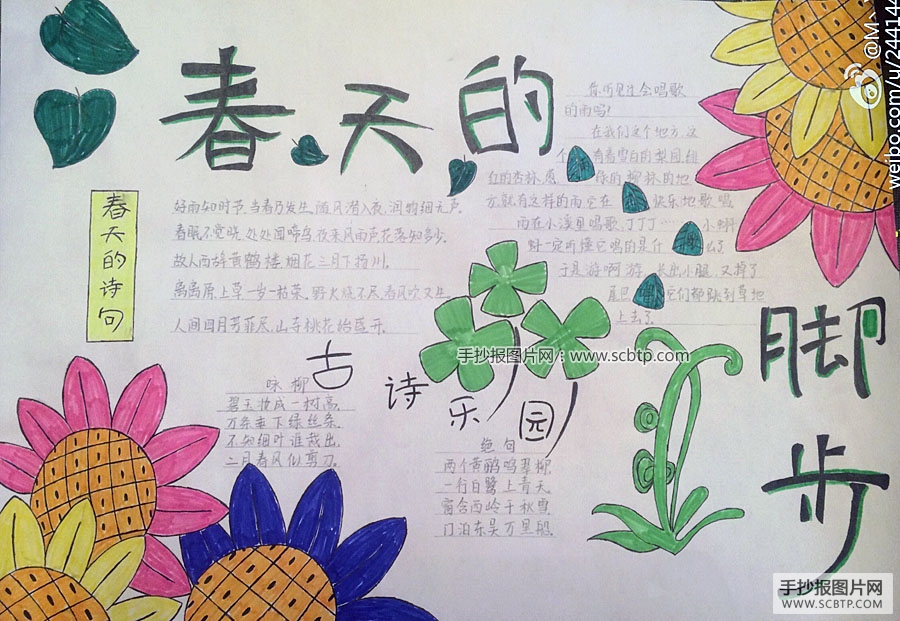 春天的
脚步
春天的诗句
好雨知时节,当春乃发生,随风潜入夜,润物细无声.
春眠不觉晓,处处闻啼鸟,夜来风雨声花落知多少.
故人西辞黄鹤楼,烟花三月下扬川.
离离原上草一岁一枯荣.野火烧不尽,春风吹又生.
人间四月芳菲尽,山寺桃花始盛开.
古诗乐园
咏柳
碧玉妆成一树高.
万条垂下绿丝条.
不知细叶谁裁出.
二月春风似剪刀.
绝句
两个黄鹂鸣翠柳.
一行白鹭上青天.
窗含西岭千秋雪
门泊东吴万里船.
你听见过会唱歌
的雨吗?
在我们这个地方,这
个 有着雪白的梨园,粉
红的杏林,
绿的柳林的地
方,就有这样的雨.它在 快乐地歌唱
雨在小溪里唱歌,丁丁…… 小蝌
蚪一定听懂它唱的是什 出了
于是游啊游, 长出小腿,又掉了
尾巴 它们都跳到草地
上去了.
手抄报图片网:www.scbtp.com
@M
weibo.com/u/244144
手抄报图片网
WWW.SCBTP.COM